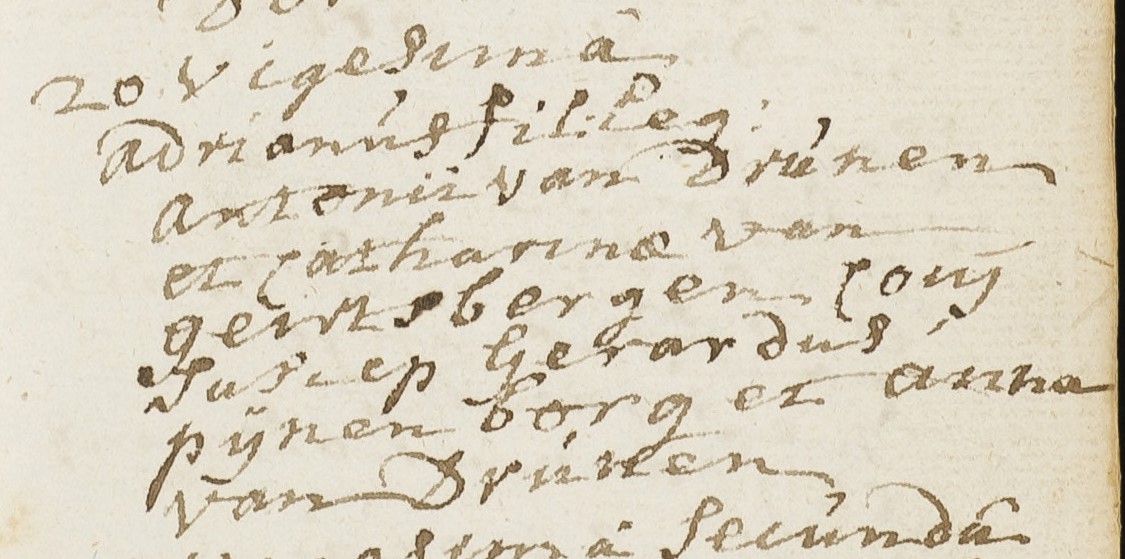 20 vigesimâ
adrianús fil: leg:
antonii van Drúnen
et Catharinæ van
geirtsbergen Conj
Suscep Gerardus
pÿnenborg et anna
van Drúnen
secúndâ